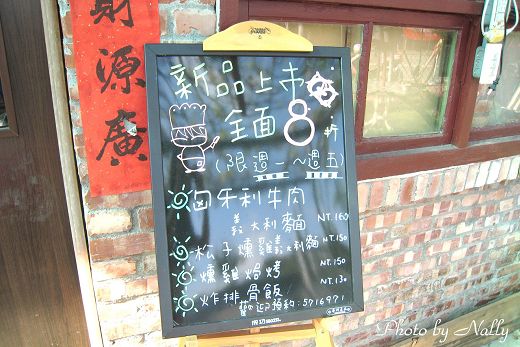 財源廣
新品上市
全面8折
(限週一~週五)
匈牙利牛肉
義大利麵 NT.160
松子燻雞義大利麵 NT.150
燻雞焗烤 NT.150
炸排骨飯 NT.130
歡迎預約:5716971
Photo by Nally